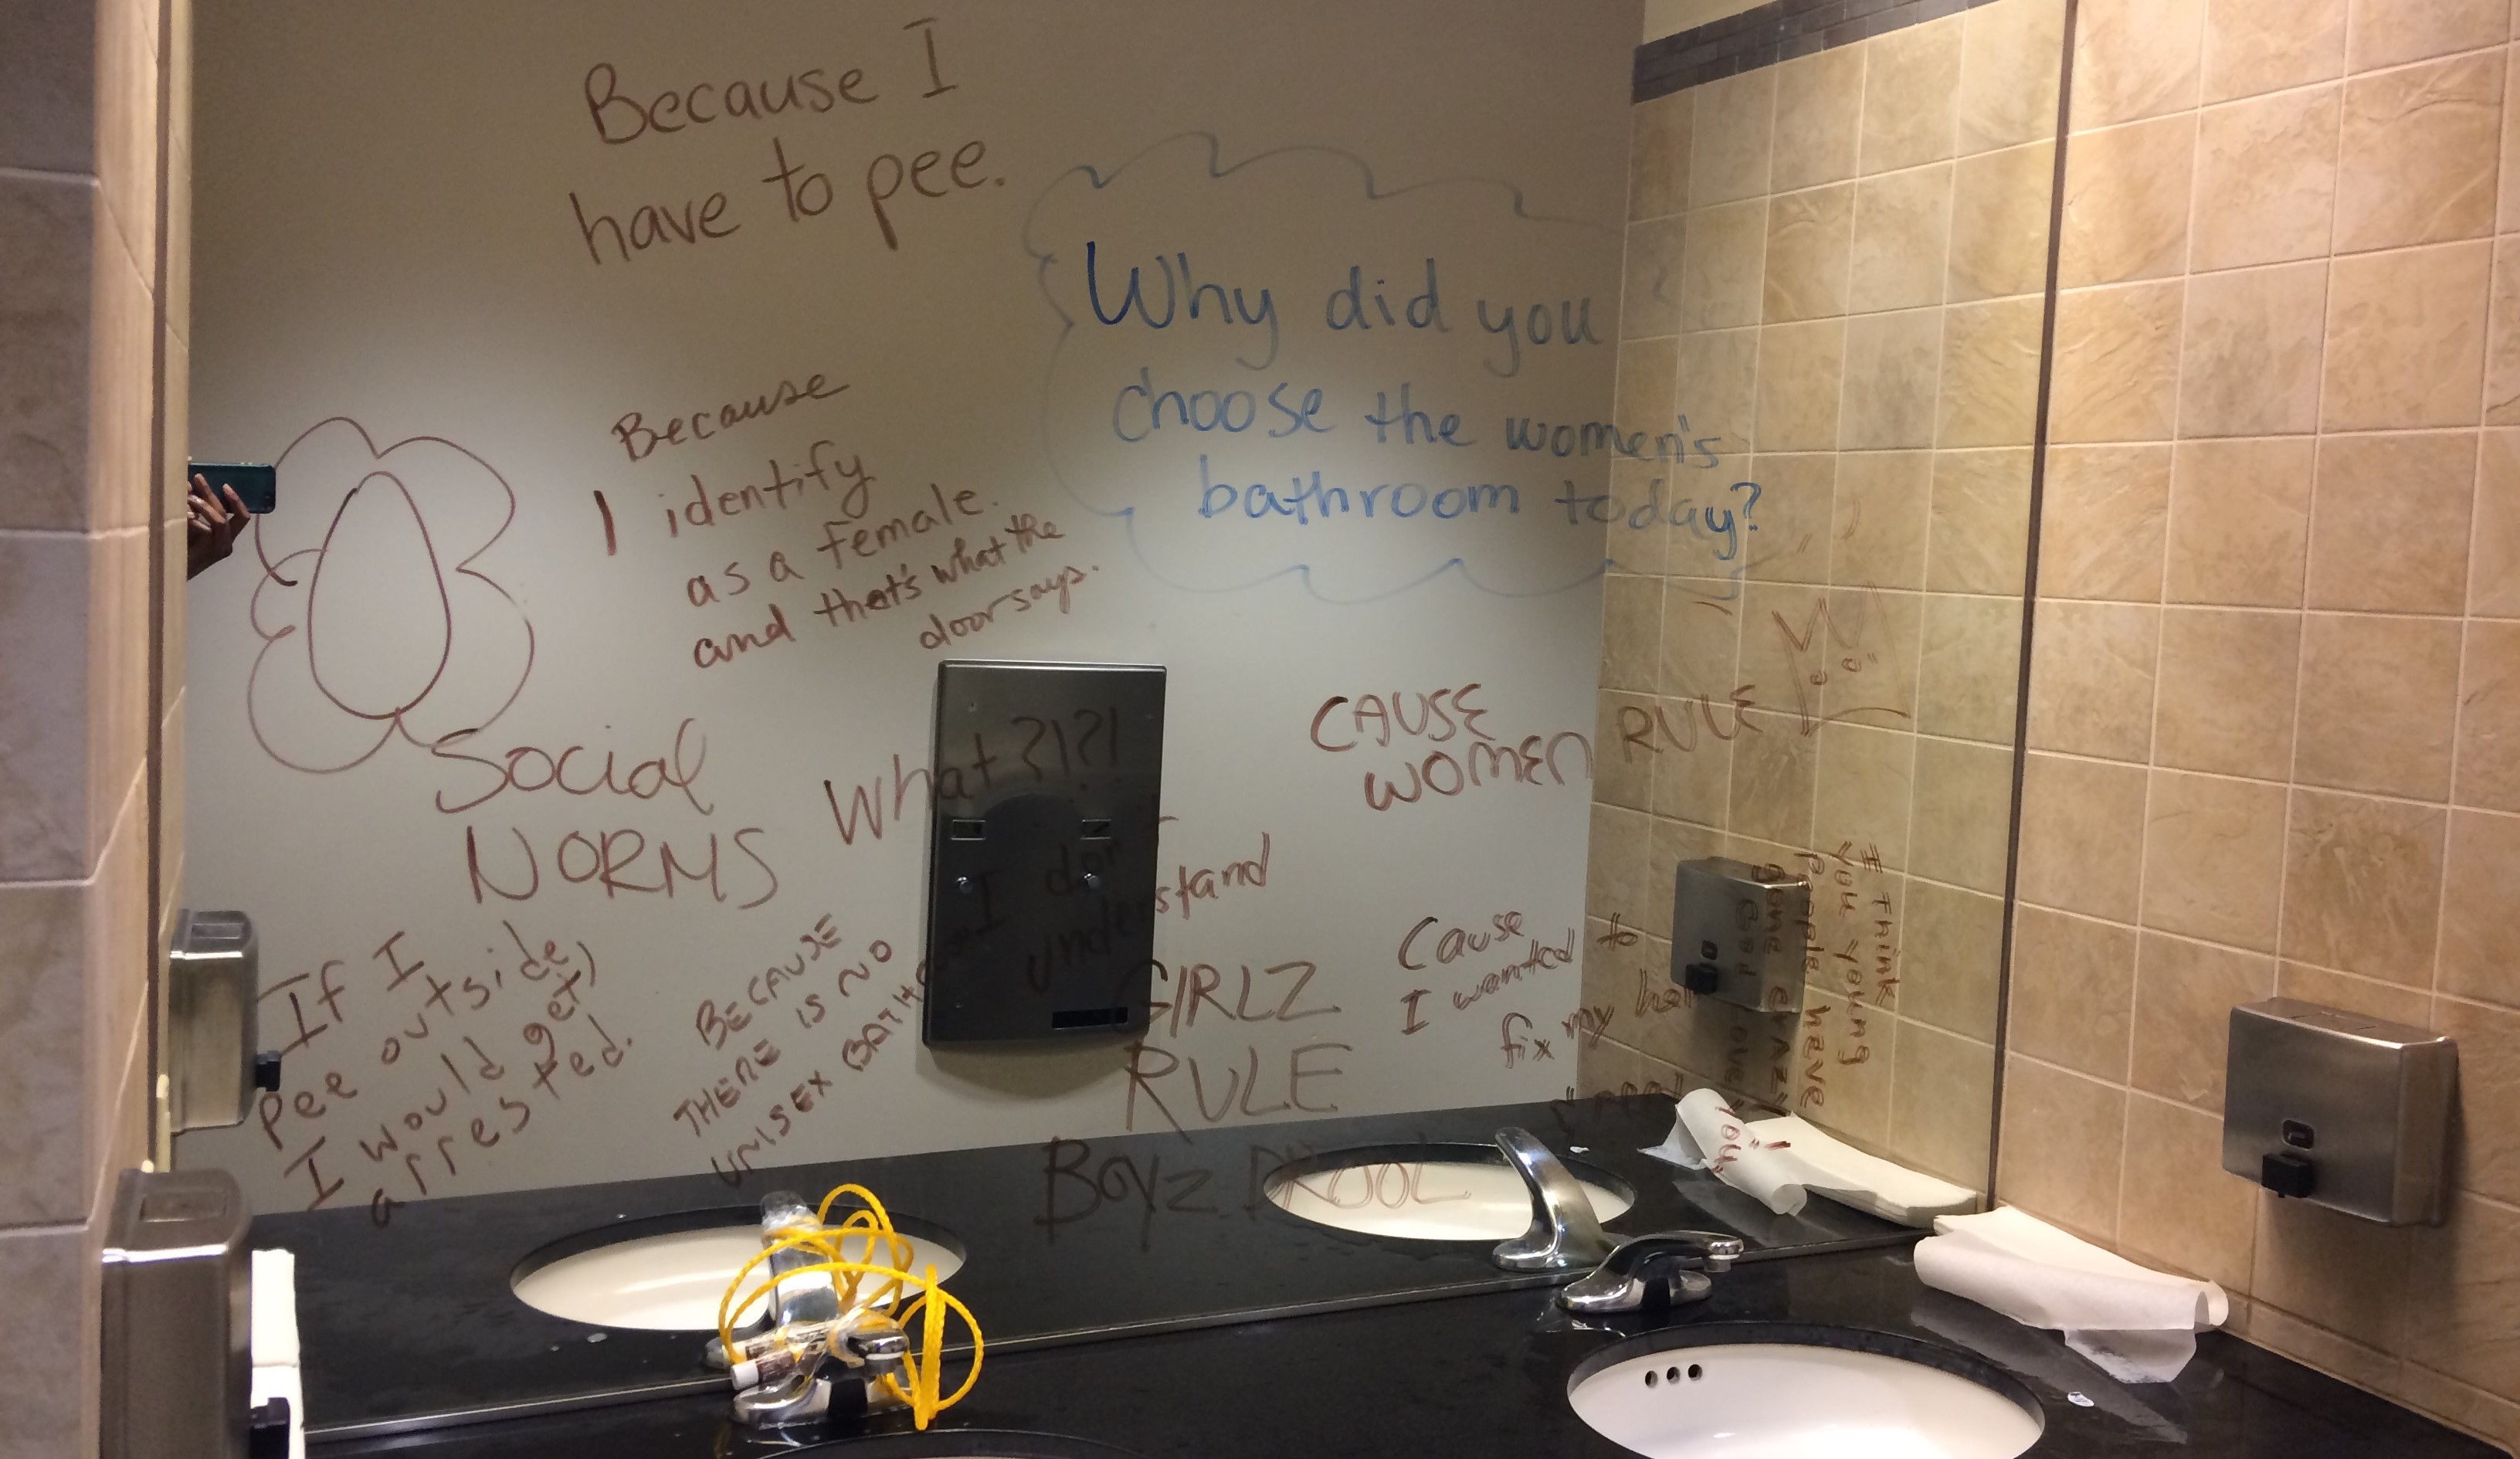 Because I
have to pee.
Why did you
choose the women's
bathroom today?
Because
I identify
as a female.
and that's what the
door says.
Social
NORMS
What?!?!
I don
understand
CAUSE
WOMEN RULE
If I
pee outside
I would get
arrested.
BECAUSE
THERE IS NO
UNISEX
GIRLZ
RULE
Boyz DROOL
Cause
I wanted to
fix my
I think
you young
people have
gone crazy
God
you